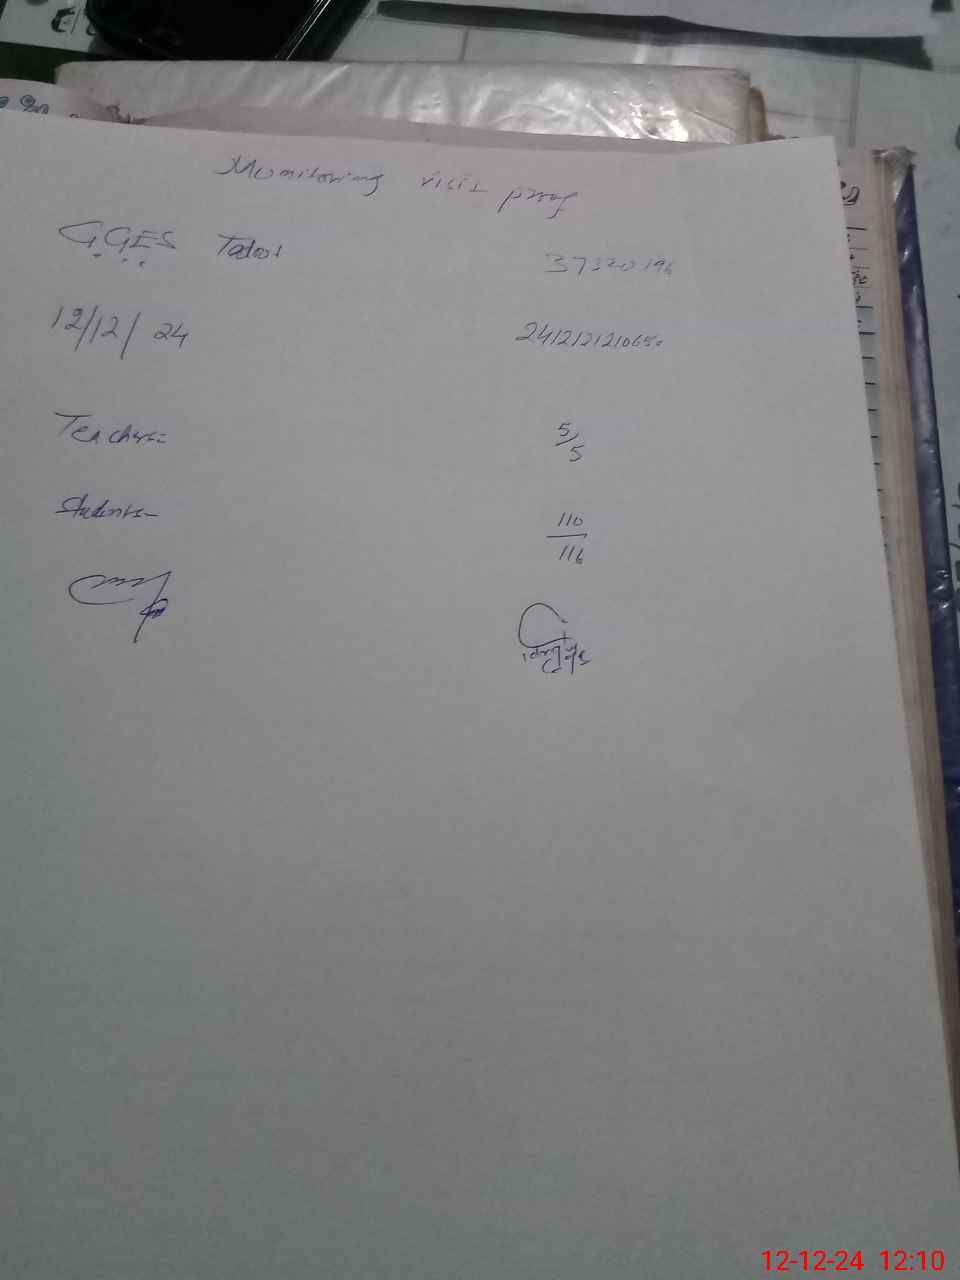 Monitoring visit proof
GGES 37320196
12/12/24
Teachers:- 5/5
Students:- 110/116
12-12-24 12:10